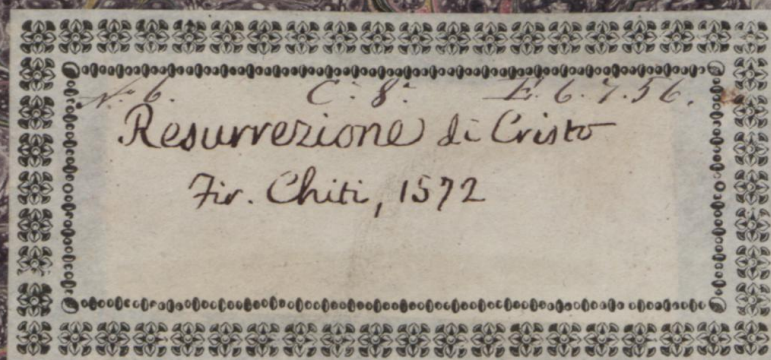 No. 6. C. 8. E. 6. 7. 56.
Resurrezione di Cristo
Fir. Chiti, 1572